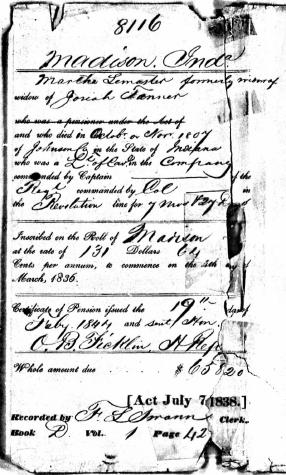 8116
Madison, Inda
Martha Lemaster formerly
widow of Josiah Tanner
who was a pensioner under the Act of
and who died in Octob. or Nov. 1807
of Johnson Co in the State of Indiana
who was a Lt of Cav. in the Company
commanded by Captain of the
Regt commanded by Col in
the Revolution line for 7 mos & 27 ds
Inscribed on the Roll of Madison
at the rate of 131 Dollars 64
Cents per annum, to commence on the 4th day of
March, 1836.
Certificate of Pension issued the 19th day of
Feby. 1844 and sent Hon.
O. B. Ficklin H. Rep
Whole amount due $ 658 20
[Act July 7 1838.]
Recorded by F. S. Swann Clerk.
Book D Vol. 1 Page 42